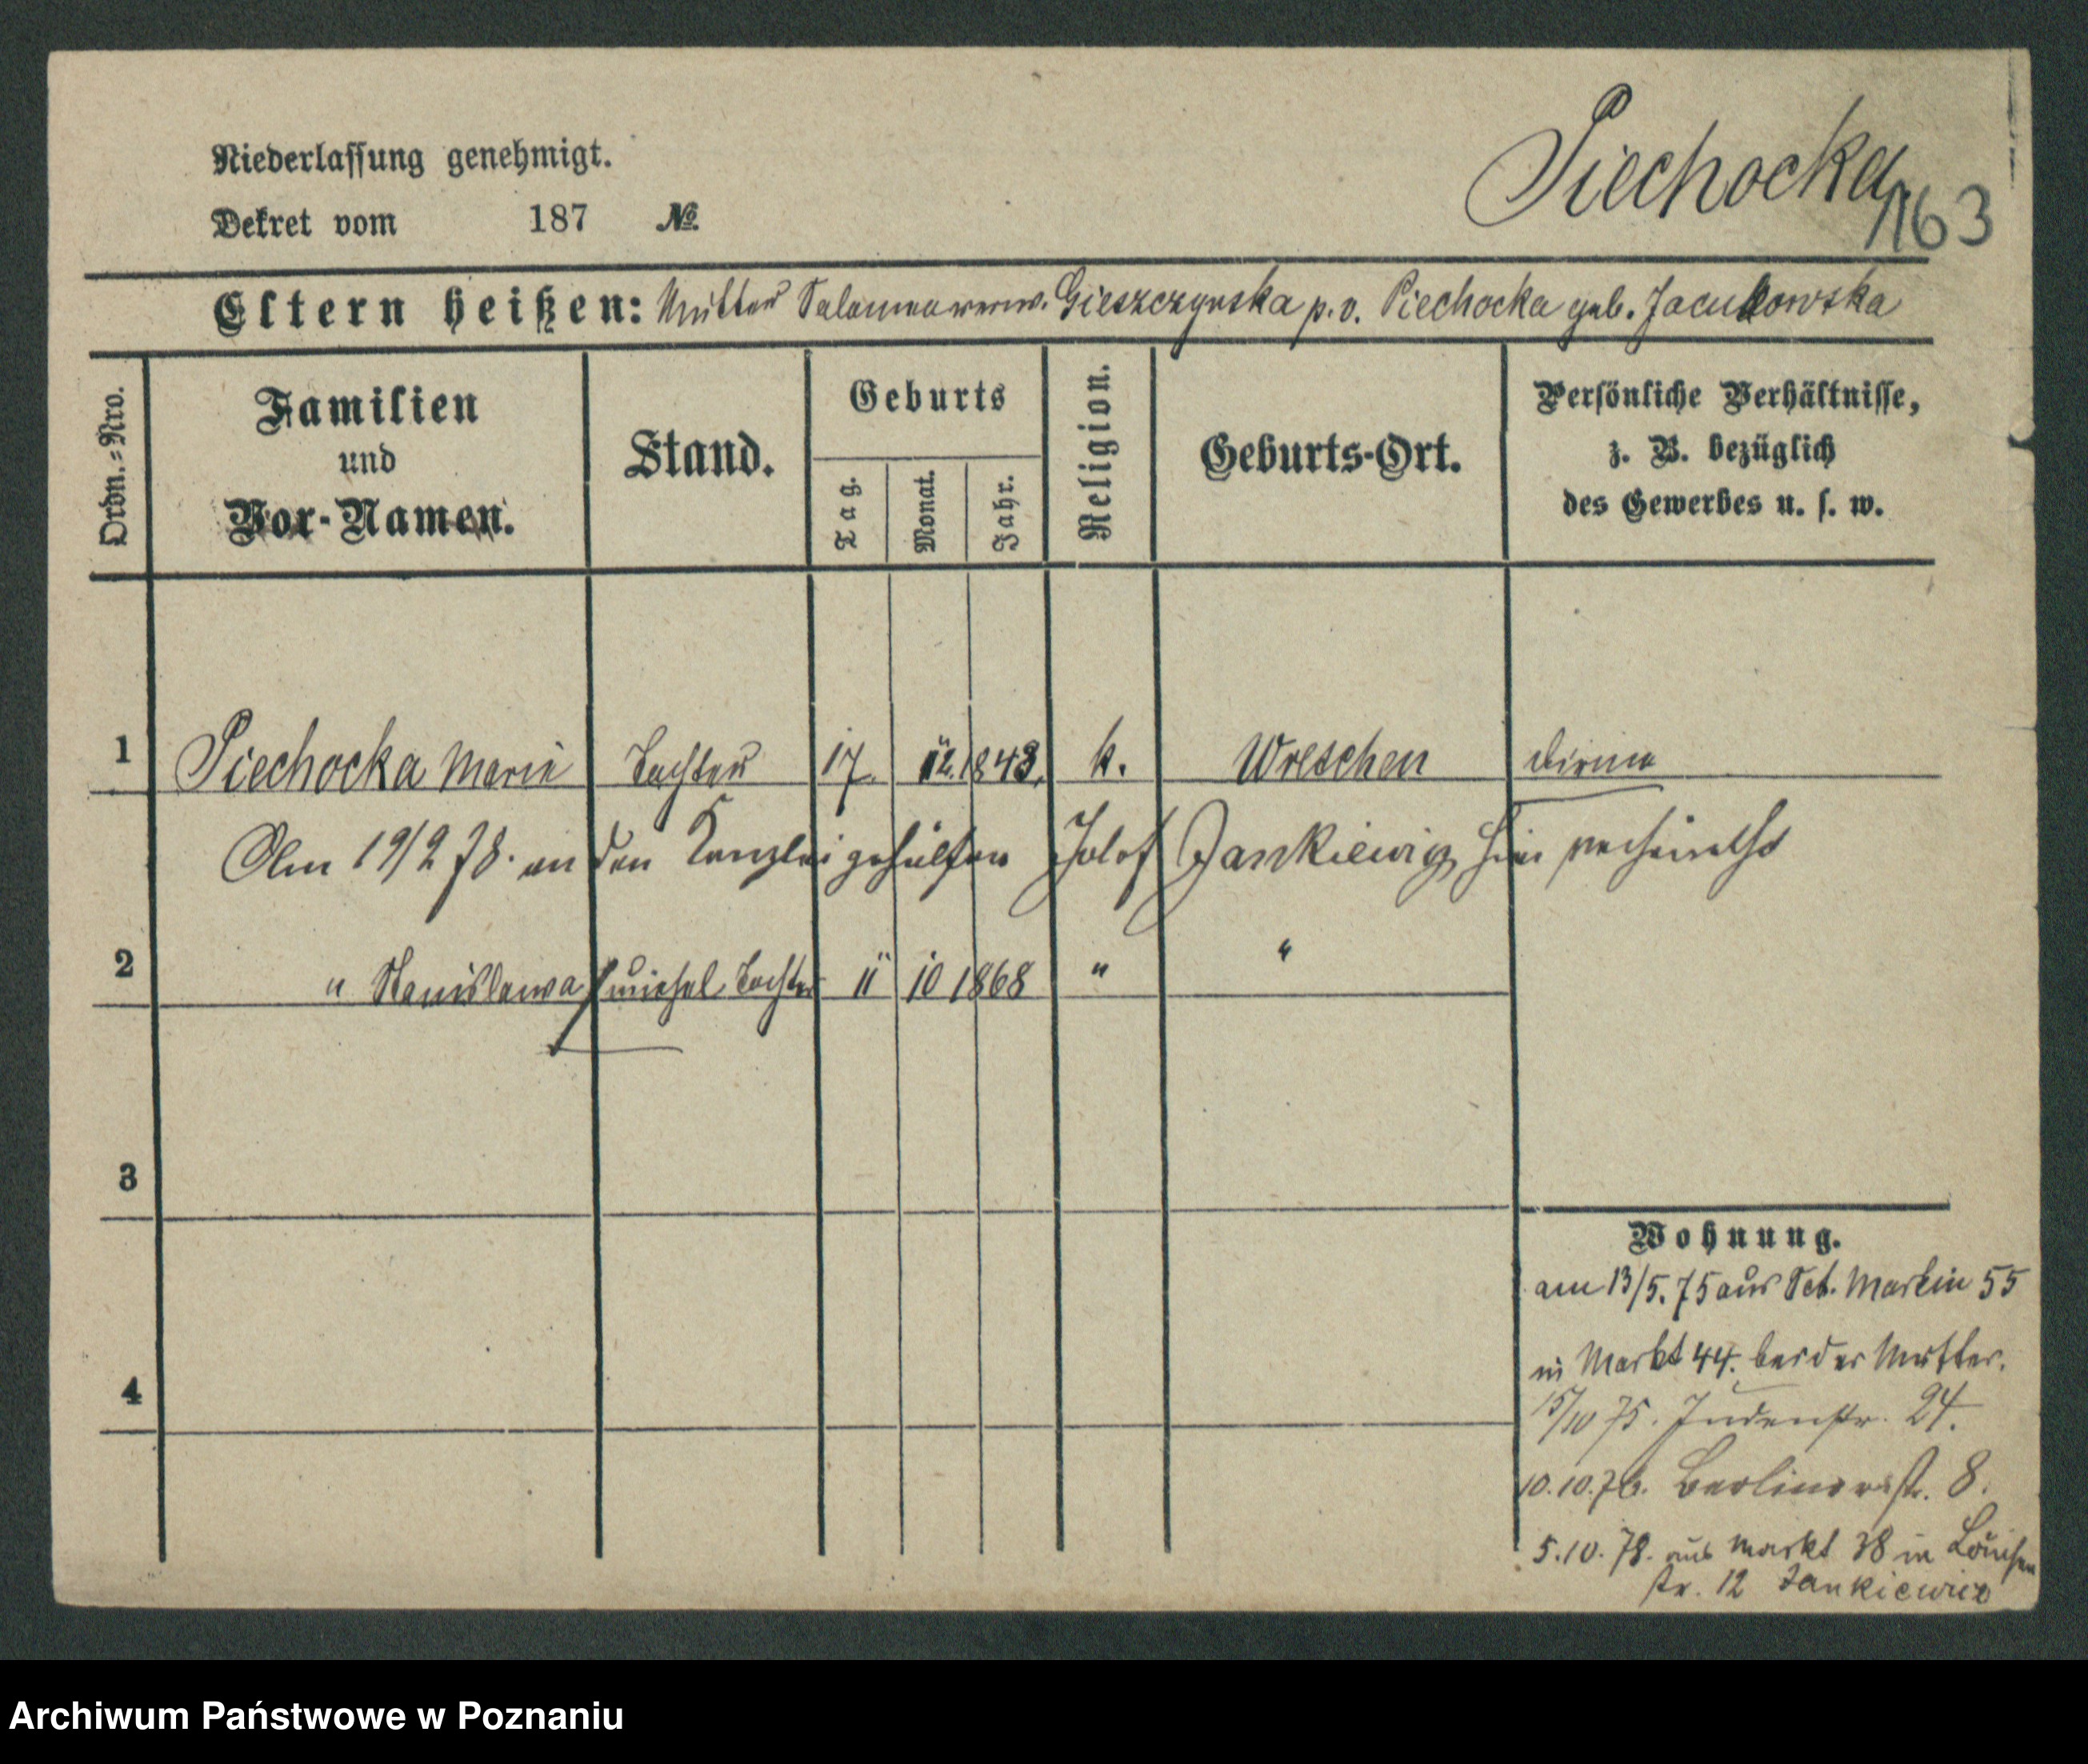 Niederlassung genehmigt.
Dekret vom 187 №
Piechocka
163
Eltern heißen: Mutter Salomea verw. Gieszczynska p. v. Piechocka geb. Jacukowska
Ordn.-Nro.
Familien
und
Vor-Namen.
Stand.
Geburts
Tag.
Monat.
Jahr.
Religion.
Geburts-Ort.
Persönliche Verhältnisse,
z. B. bezüglich
des Gewerbes u. s. w.
1 Piechocka Marie Tochter 17. 12. 1843. k. Wreschen Dirne
Am 19/2 78. an den Kanzleigehülfen Josef Jankiewicz hier verheirathet
2 " Stanislawa unehel. Tochter 11 10 1868 " "
3
4
Wohnung.
am 13/5. 75 aus Sct. Martin 55
in Markt 44. bei der Mutter.
15/10 75. Judenstr. 24.
10.10.76. Berlinerstr. 8.
5.10.78. aus Markt 38 in Louisen
str. 12 Jankiewicz
Archiwum Państwowe w Poznaniu